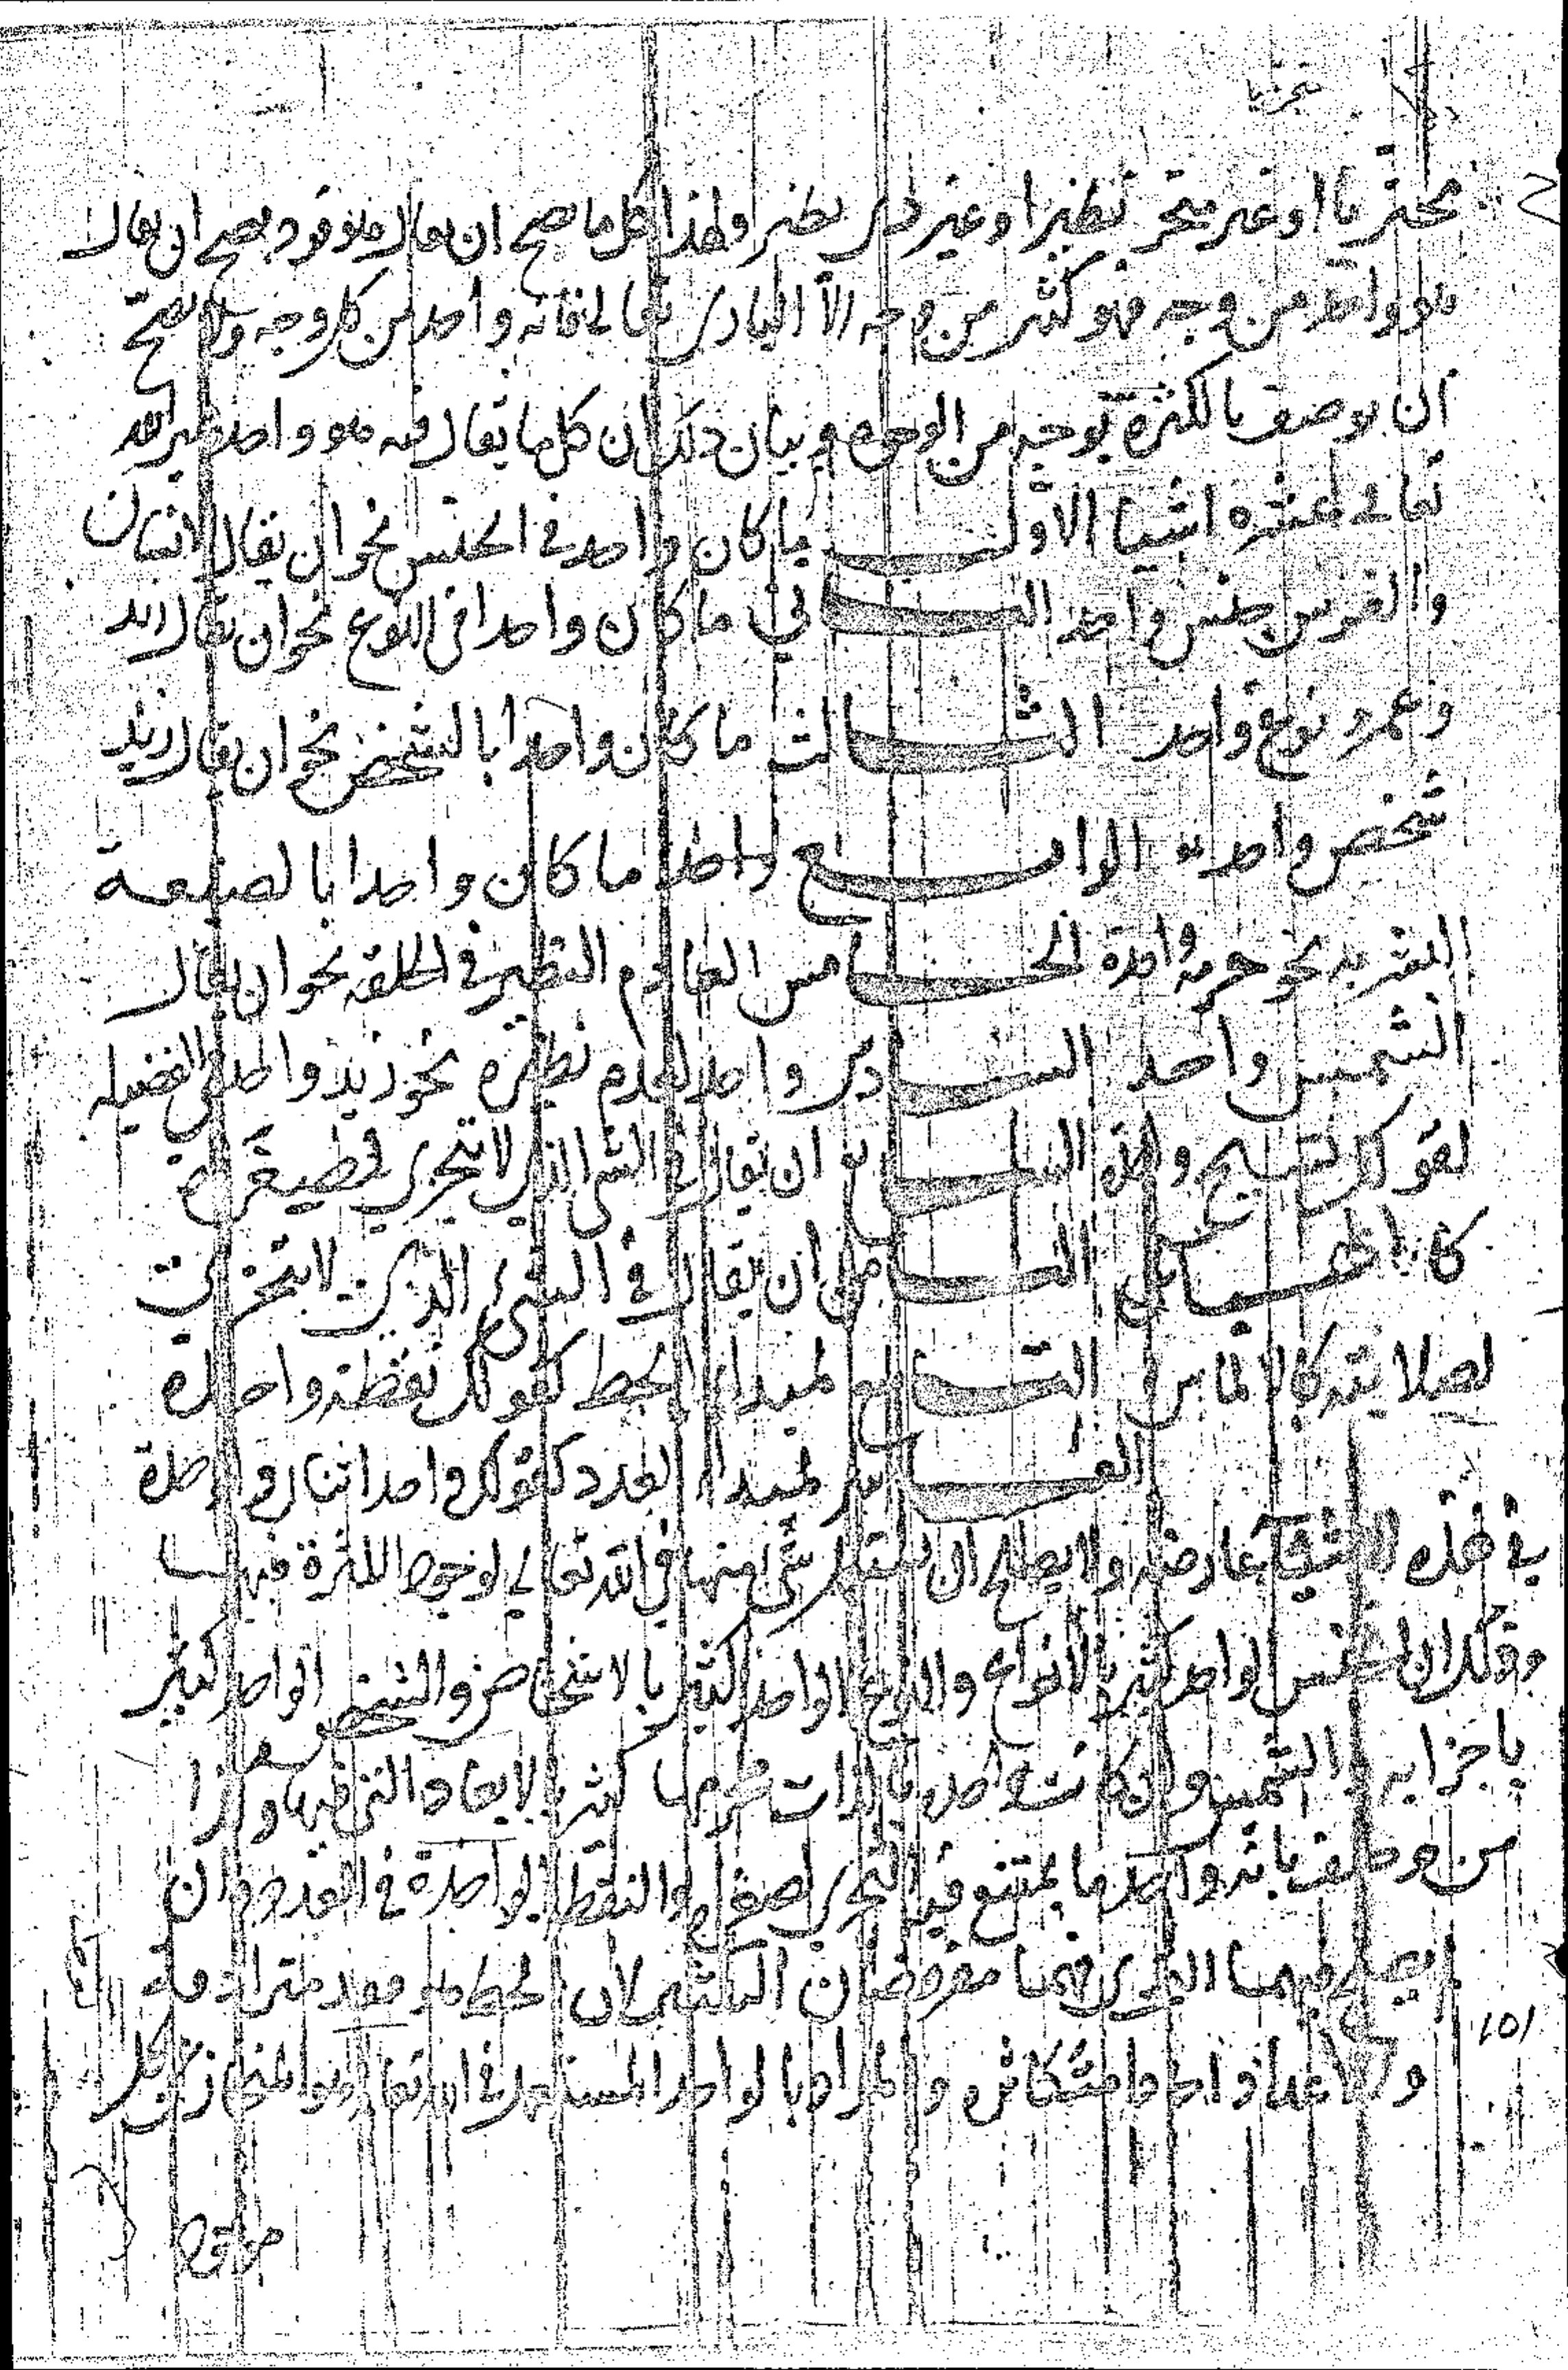 متجزيا
متجزيا او غير متجز نظيرا او غير ذي نظير ولهذا كل ما صح ان يقال هو فرد يصح ان يقال
هو واحد من وجه فهو كثير من وجه الا الباري تعالى فانه واحد من كل وجه ولا يصح
ان يوصف بالكثرة بوجه من الوجوه وبيان ذلك ان كل ما يقال فيه هو واحد غير الله
تعالى عشره اشيا الاول ما كان واحد في الجنس نحو ان يقال الانسان
والفرس جنس واحد الثاني ما كان واحدا في النوع نحو ان يقال زيد
وعمرو نوع واحد الثالث ما كان واحدا بالشخص نحو ان يقال زيد
شخص واحد الرابع واحد ما كان واحدا بالصنعة
البشريه نحو حرمه واحدة الخامس العادم النظير في الخلقه نحو ان يقال
الشمس واحد السادس واحد لعدم نظيره نحو زيد واحد في الفضيله
لقولك نسيج وحده السابع ان يقال في الشي الذي لا يتجزى
كالهبا الثامن ان يقال في الشيء الذي لا يتجزى
لصلابته كالالماس التاسع لمبداء الخط كقولك نقطة واحدة
العاشر لمبداء العدد كقولك واحد اثنان والوحدة
في هذه الاشيا عارضه ولا يصلح ان يستعمل شي منها في الله تعالى لوجود الكثرة فيها
وذلك ان الجنس الواحد كثير بالانواع والنوع الواحد كثير بالاشخاص والشخص الواحد كثير
باجزايه والشمس وان كانت واحده بالذات كثير بالابعاد التي فيها وكذا
من وصف بانه واحد ما يمتنع فيه التجزي لصغره والنقطه الواحدة في العدد وان
لم يصلح فيهما التجزي فهما مفروضان التكثير لان الخط هو نقط مترادفة
والاعداد احاد متكاثره والمراد بالواحد المستعمل في الله تعالى هو المنحاز عن كل
١٥١